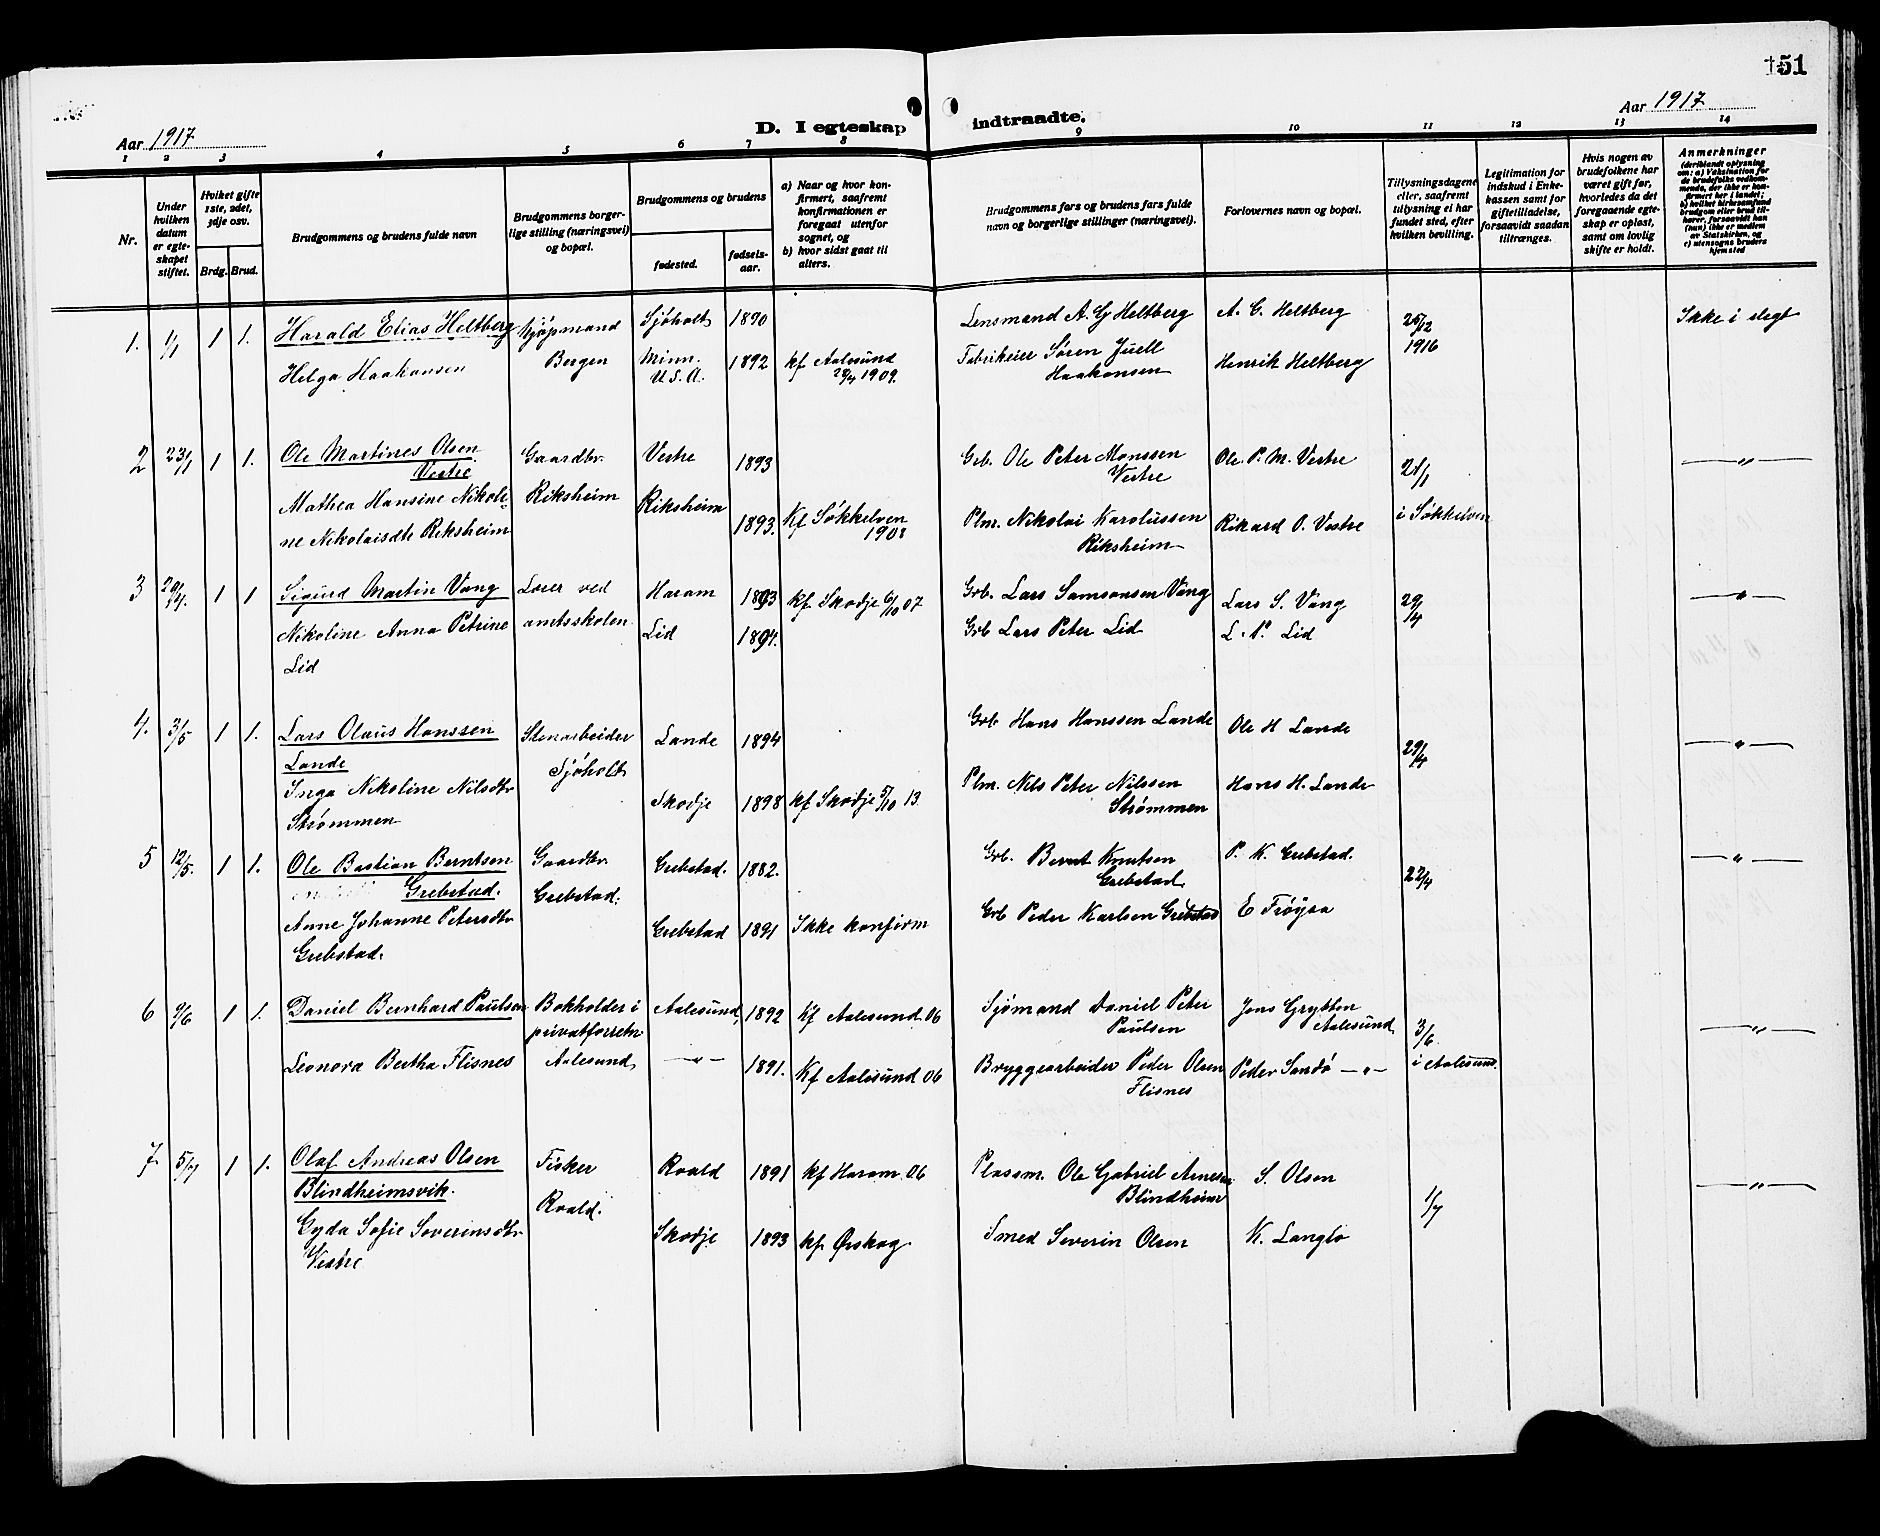 151
Aar 1917
D. I egteskap indtraadte.
Aar 1917
1 2 3 4 5 6 7 8 9 10 11 12 13 14
Nr.
Under hvilken datum er egteskapet stiftet.
Hvilket gifte 1ste, 2det, 3dje osv.
Brdg. Brud.
Brudgommens og brudens fulde navn
Brudgommens borgerlige stilling (næringsvei) og bopæl.
Brudgommens og brudens
fødested.
fødselsaar.
a) Naar og hvor konfirmert, saafremt konfirmationen er foregaat utenfor sognet, og
b) hvor sidst gaat til alters.
Brudgommens fars og brudens fars fulde navn og borgerlige stillinger (næringsvei).
Forlovernes navn og bopæl.
Tillysningsdagene eller, saafremt tillysning ei har fundet sted, efter hvilken bevilling.
Legitimation for indskud i Enkekassen samt for giftetilladelse, forsaavidt saadan tiltrænges.
Hvis nogen av brudefolkene har været gift før, hvorledes da det foregaaende egteskap er opløst, samt om lovlig skifte er holdt.
Anmerkninger
(deriblandt oplysning om: a) Vaksination for de brudefolks vedkommende, der ikke er konfirmert her i landet; b) hvilket kirkesamfund brudgom eller brud tilhører, forsaavidt han (hun) ikke er medlem av Statskirken, og c) utensogns bruders hjemsted
1. 1/1 1 1. Harald Elias Heltberg Kjøpmand Sjøholt 1890 Lensmand A. G Heltberg A. G. Heltberg 26/12 1916 Ikke i slegt
Helga Haakonsen Bergen Minn. U.S.A. 1892 kf Aalesund 1909. Fabrikeier Søren Juell Haakonsen Henrik Heltberg
2 23/1 1 1. Ole Martines Olsen Vestre Gaardbr. Vestre 1893 Grb. Ole Peter Monssen Vestre Ole P. M. Vestre 21/1 —"—
Mathea Hansine Nikoline Nikolaisdtr Riksheim Riksheim Riksheim 1893. Kf Søkkelven 1908 Plm. Nikolai Karolussen Riksheim Rikard O. Vestre i Søkkelven
3 29/4. 1 1 Sigurd Martin Vang Lærer ved Haram 1893 kf Skodje 6/10 07 Grb. Lars Samsonsen Vang Lars S. Vang 29/4 —"—
Nikoline Anna Petrine Lid amtsskolen Lid 1894. Grb Lars Peter Lid L. P. Lid
4. 3/5 1 1. Lars Olaus Hanssen Lande Stenarbeider Lande 1894 Grb Hans Hanssen Lande Ole H Lande 29/4 —"—
Inga Nikoline Nilsdtr Strømmen Sjøholt Skodje 1898 kf Skodje 5/10 13. Plm. Nils Peter Nilssen Strømmen Hans H. Lande
5 12/5. 1 1. Ole Bastian Berntsen Grebstad. Gaardbr. Grebstad. 1882. Grb. Bernt Knutsen Grebstad P. K. Grebstad. 22/4 —"—
Anne Johanne Petersdtr Grebstad. Grebstad. Grebstad 1891 Ikke konfirm Grb Peder Karlsen Grebstad E Frøysa
6 9/6 1 1. Daniel Bernhard Paulsen Bokholder i privatforretn. Aalesund, 1892 Kf Aalesund. 06 Sjømand Daniel Peter Paulsen Jons Grytten Aalesund 3/6. —"—
Leonora Bertha Flisnes Aalesund —"— 1891. Kf Aalesund 06 Bryggearbeider Peder Olsen Flisnes Peder Sandø —"— i Aalesund.
7 5/7 1 1. Olaf Andreas Olsen Blindheimsvik. Fisker Roald 1891 kf Haram. 06 Plassm. Ole Gabriel Arnesen Blindheim S. Olsen 1/7 —"—
Gyda Sofie Severinsdtr Vestre Roald. Skodje 1893 kf. Ørskog Smed Severin Olsen K. Langlo